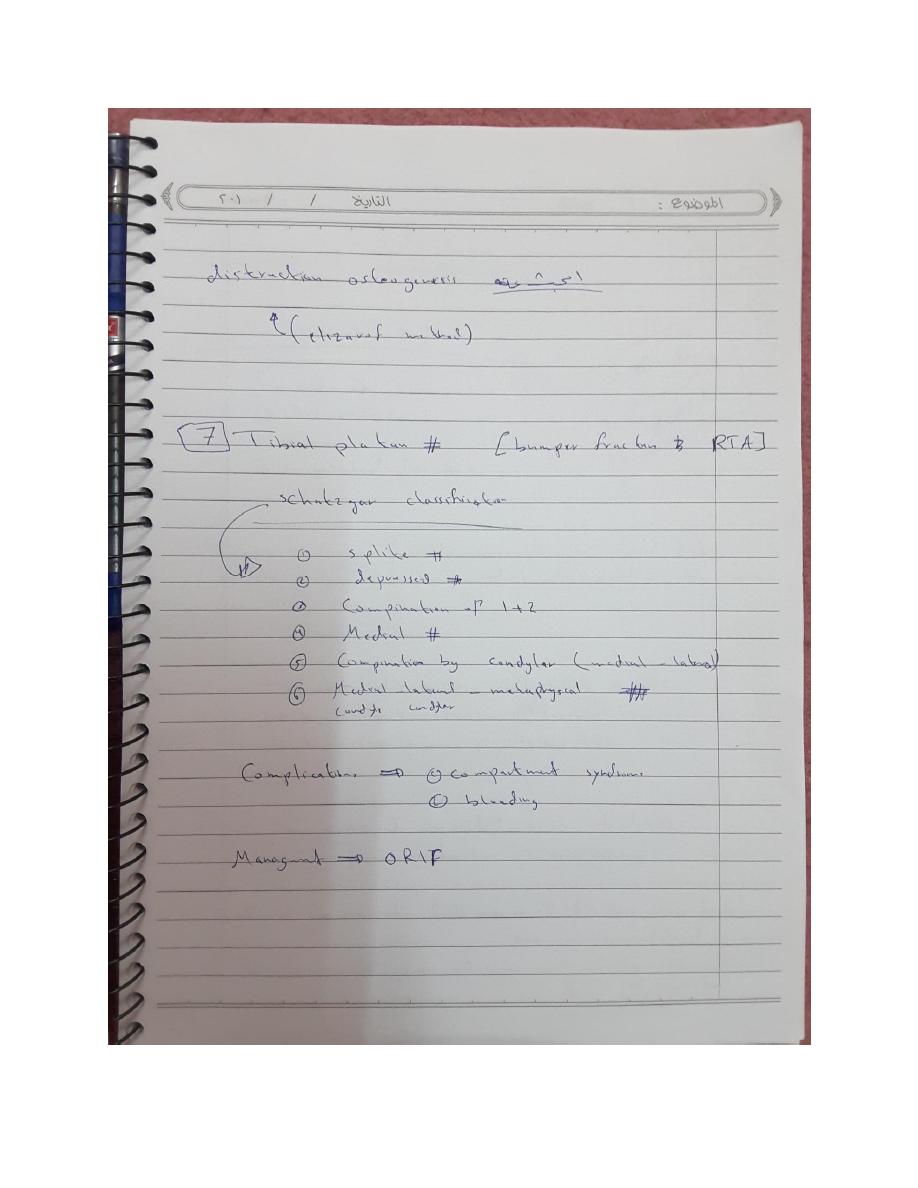 الموضوع : التاريخ / / ٢٠١
distraction osteogenesis
(elizarof method)
7 Tibial platau # [bumper fractur RTA]
schatzgar classification
① splite #
② depressed #
③ Compination of 1+2
④ Medial #
⑤ Compination by condylar (medial - lateral)
⑥ Medial - lateral - metaphysical #
Complications ⇒ ① compartment syndrome
② bleeding
Managment ⇒ ORIF